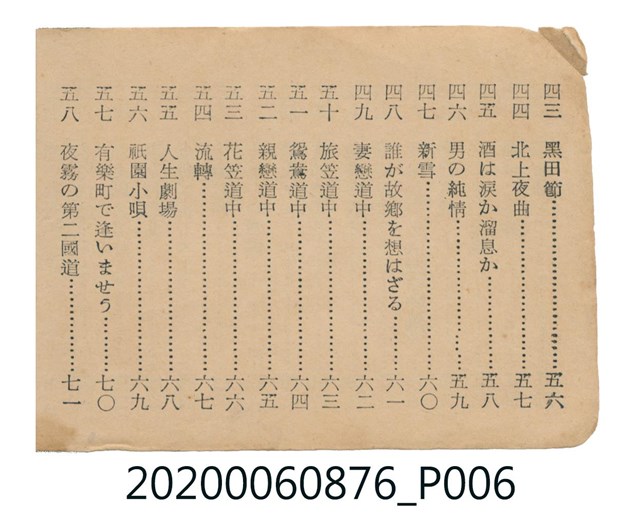 四三 黑田節……五六
四四 北上夜曲……五七
四五 酒は淚か溜息か……五八
四六 男の純情……五九
四七 新雪……六〇
四八 誰が故鄉を想はざる……六一
四九 妻戀道中……六二
五十 旅笠道中……六三
五一 鴛鴦道中……六四
五二 親戀道中……六五
五三 花笠道中……六六
五四 流轉……六七
五五 人生劇場……六八
五六 祇園小唄……六九
五七 有樂町で逢いませう……七〇
五八 夜霧の第二國道……七一
20200060876_P006